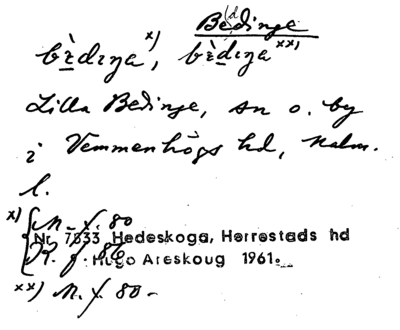 Bedinge
bèdıŋa x), bèdıŋa xx)
Lilla Bedinge, sn o. by
i Vemmenhögs hd, Malm.
l.
x) M. f. 80
Nr 7533 Hedeskoga, Herrestads hd
Hugo Areskoug 1961.
xx) M. f. 80 -